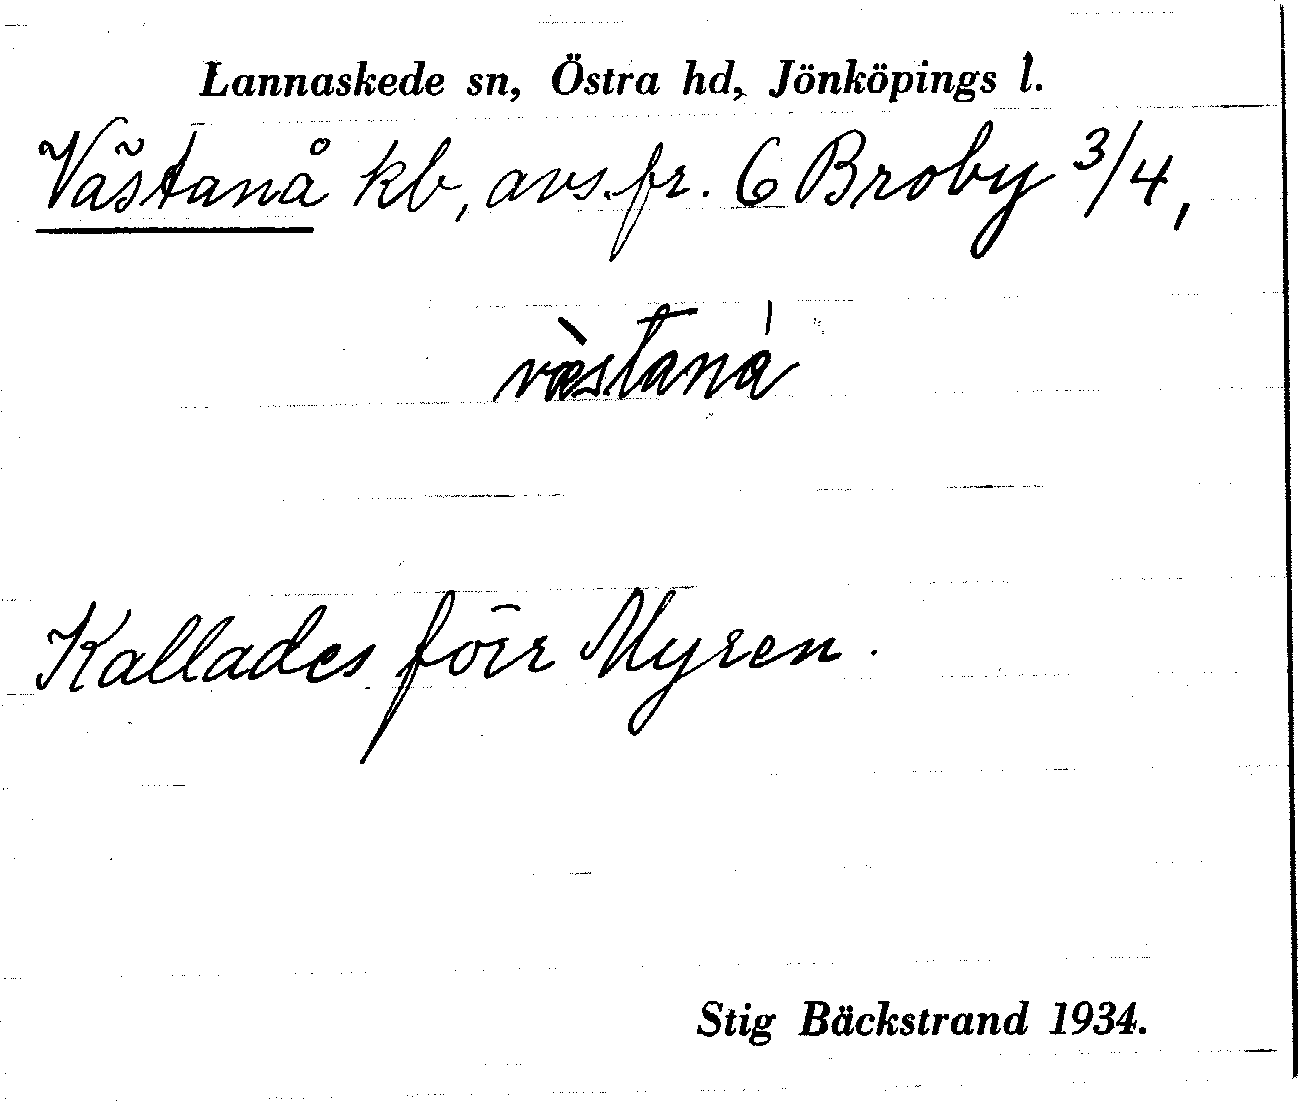 Lannaskede sn, Östra hd, Jönköpings l.
Västanå kb, avs. fr. 6 Broby 3/4,
væ̀staná
Kallades förr Myren.
Stig Bäckstrand 1934.